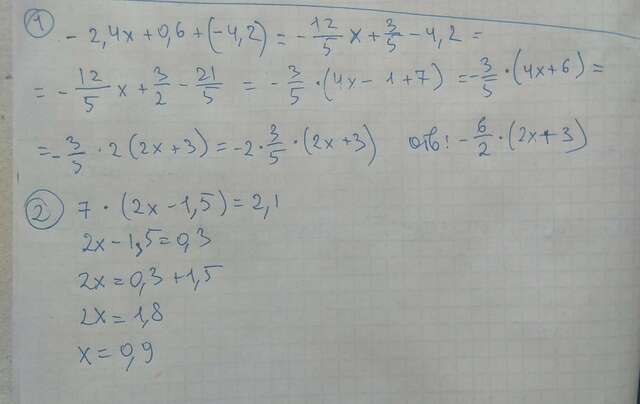 ① - 2,4x + 0,6 + (-4,2) = - 12/5 x + 3/5 - 4,2 =
= - 12/5 x + 3/2 - 21/5 = - 3/5 · (4x - 1 + 7) = - 3/5 · (4x + 6) =
= - 3/5 · 2 (2x + 3) = -2 · 3/5 · (2x + 3) отв: - 6/2 · (2x + 3)
② 7 · (2x - 1,5) = 2,1
2x - 1,5 = 0,3
2x = 0,3 + 1,5
2x = 1,8
x = 0,9